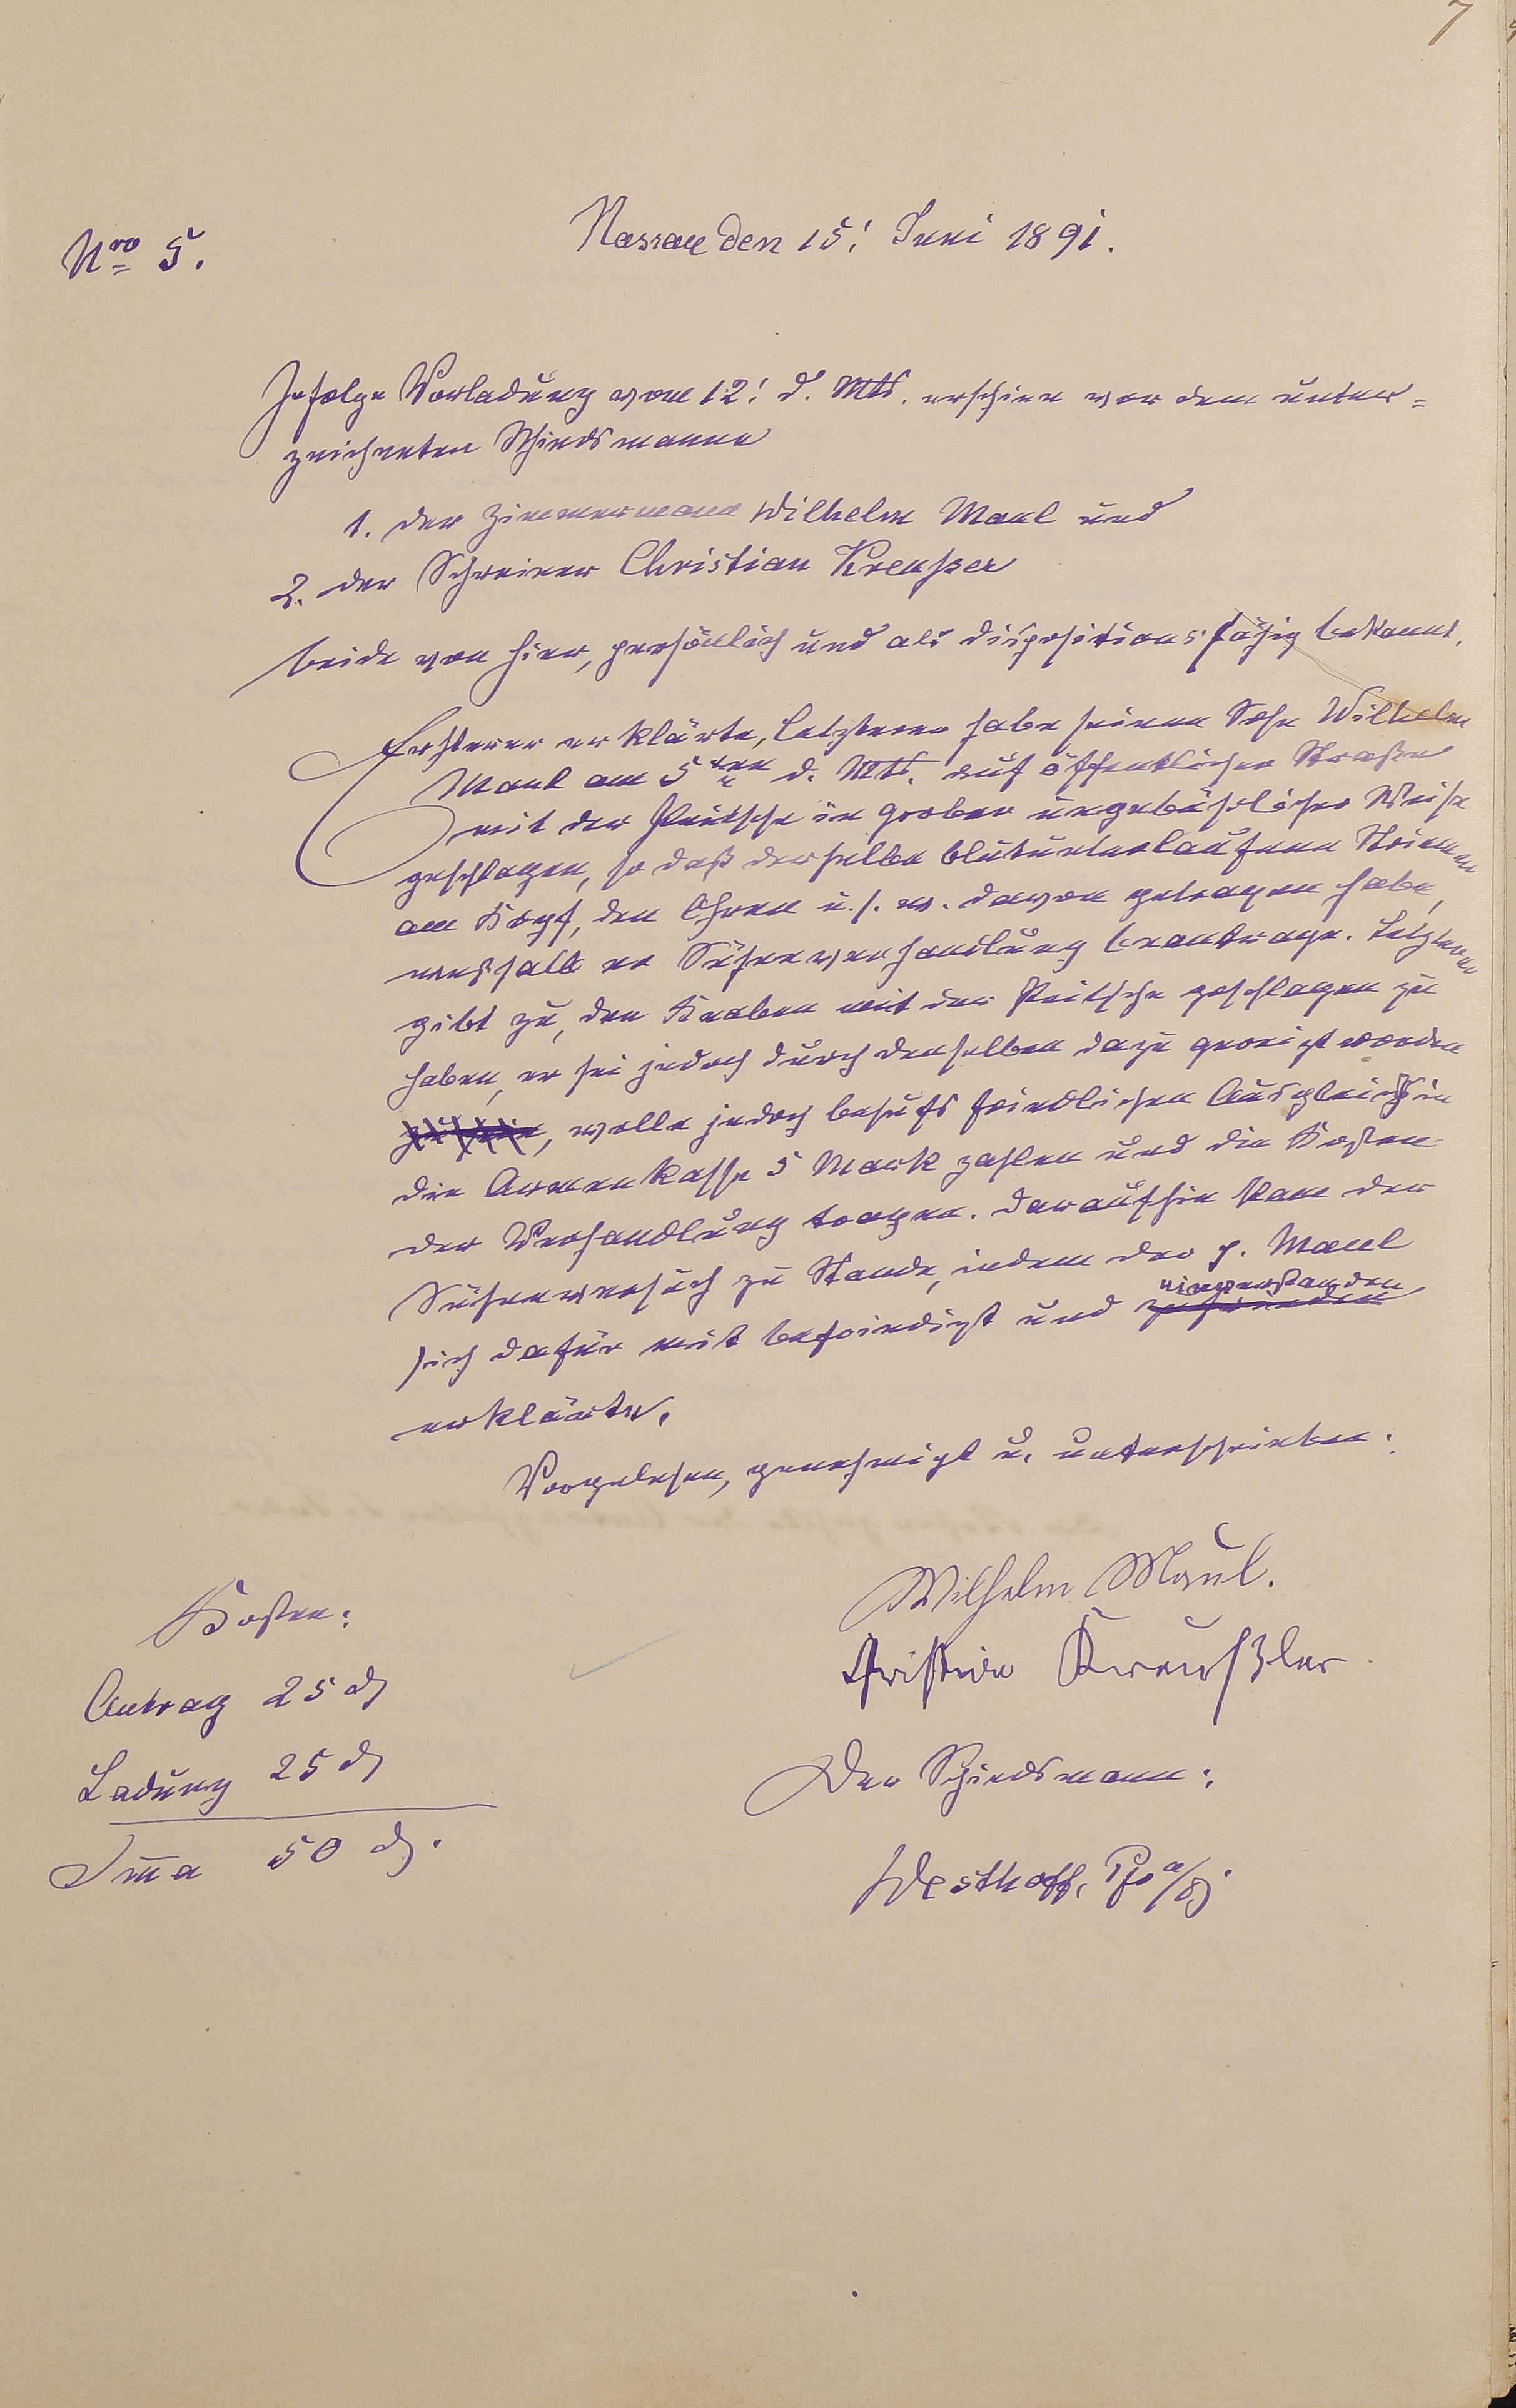 7
Nro 5.
Nassau den 15! Juni 1891.
Infolge Vorladung vom 12! d. Mts. erschien vor dem unter=
zeichneten Schiedsmanne
1. der Zimmermann Wilhelm Maul und
2. der Schreiner Christian Kreußer
beide von hier, persönlich und als dispositionsfähig bekannt.
Ersterer erklärte, Letzterer habe seinen Sohn Wilhelm
Maul am 5ten d. Mts. auf öffentlicher Straße
mit der Peitsche in grober ungebührlicher Weise
geschlagen, so daß derselbe blutunterlaufene Striemen
am Kopf, den Ohren u. s. w. davon getragen habe,
weshalb er Sühneverhandlung beantrage. Letzterer
gibt zu, den Knaben mit der Peitsche geschlagen zu
haben, er sei jedoch durch denselben dazu gereizt worden
zu sein, wolle jedoch behufs friedlichen Ausgleich in
die Armenkasse 5 Mark zahlen und die Kosten
der Verhandlung tragen. Daraufhin kam der
Sühneversuch zu Stande, indem der p. Maul
einverstanden
sich dafür mit befriedigt und zufrieden
erklärte.
Vorgelesen, genehmigt u. unterschrieben:
Wilhelm Maul.
Christian Kreußler
Der Schiedsmann:
Westhoff,
Kosten:
Antrag 25 ₰
Ladung 25 ₰
Sma 50 ₰.